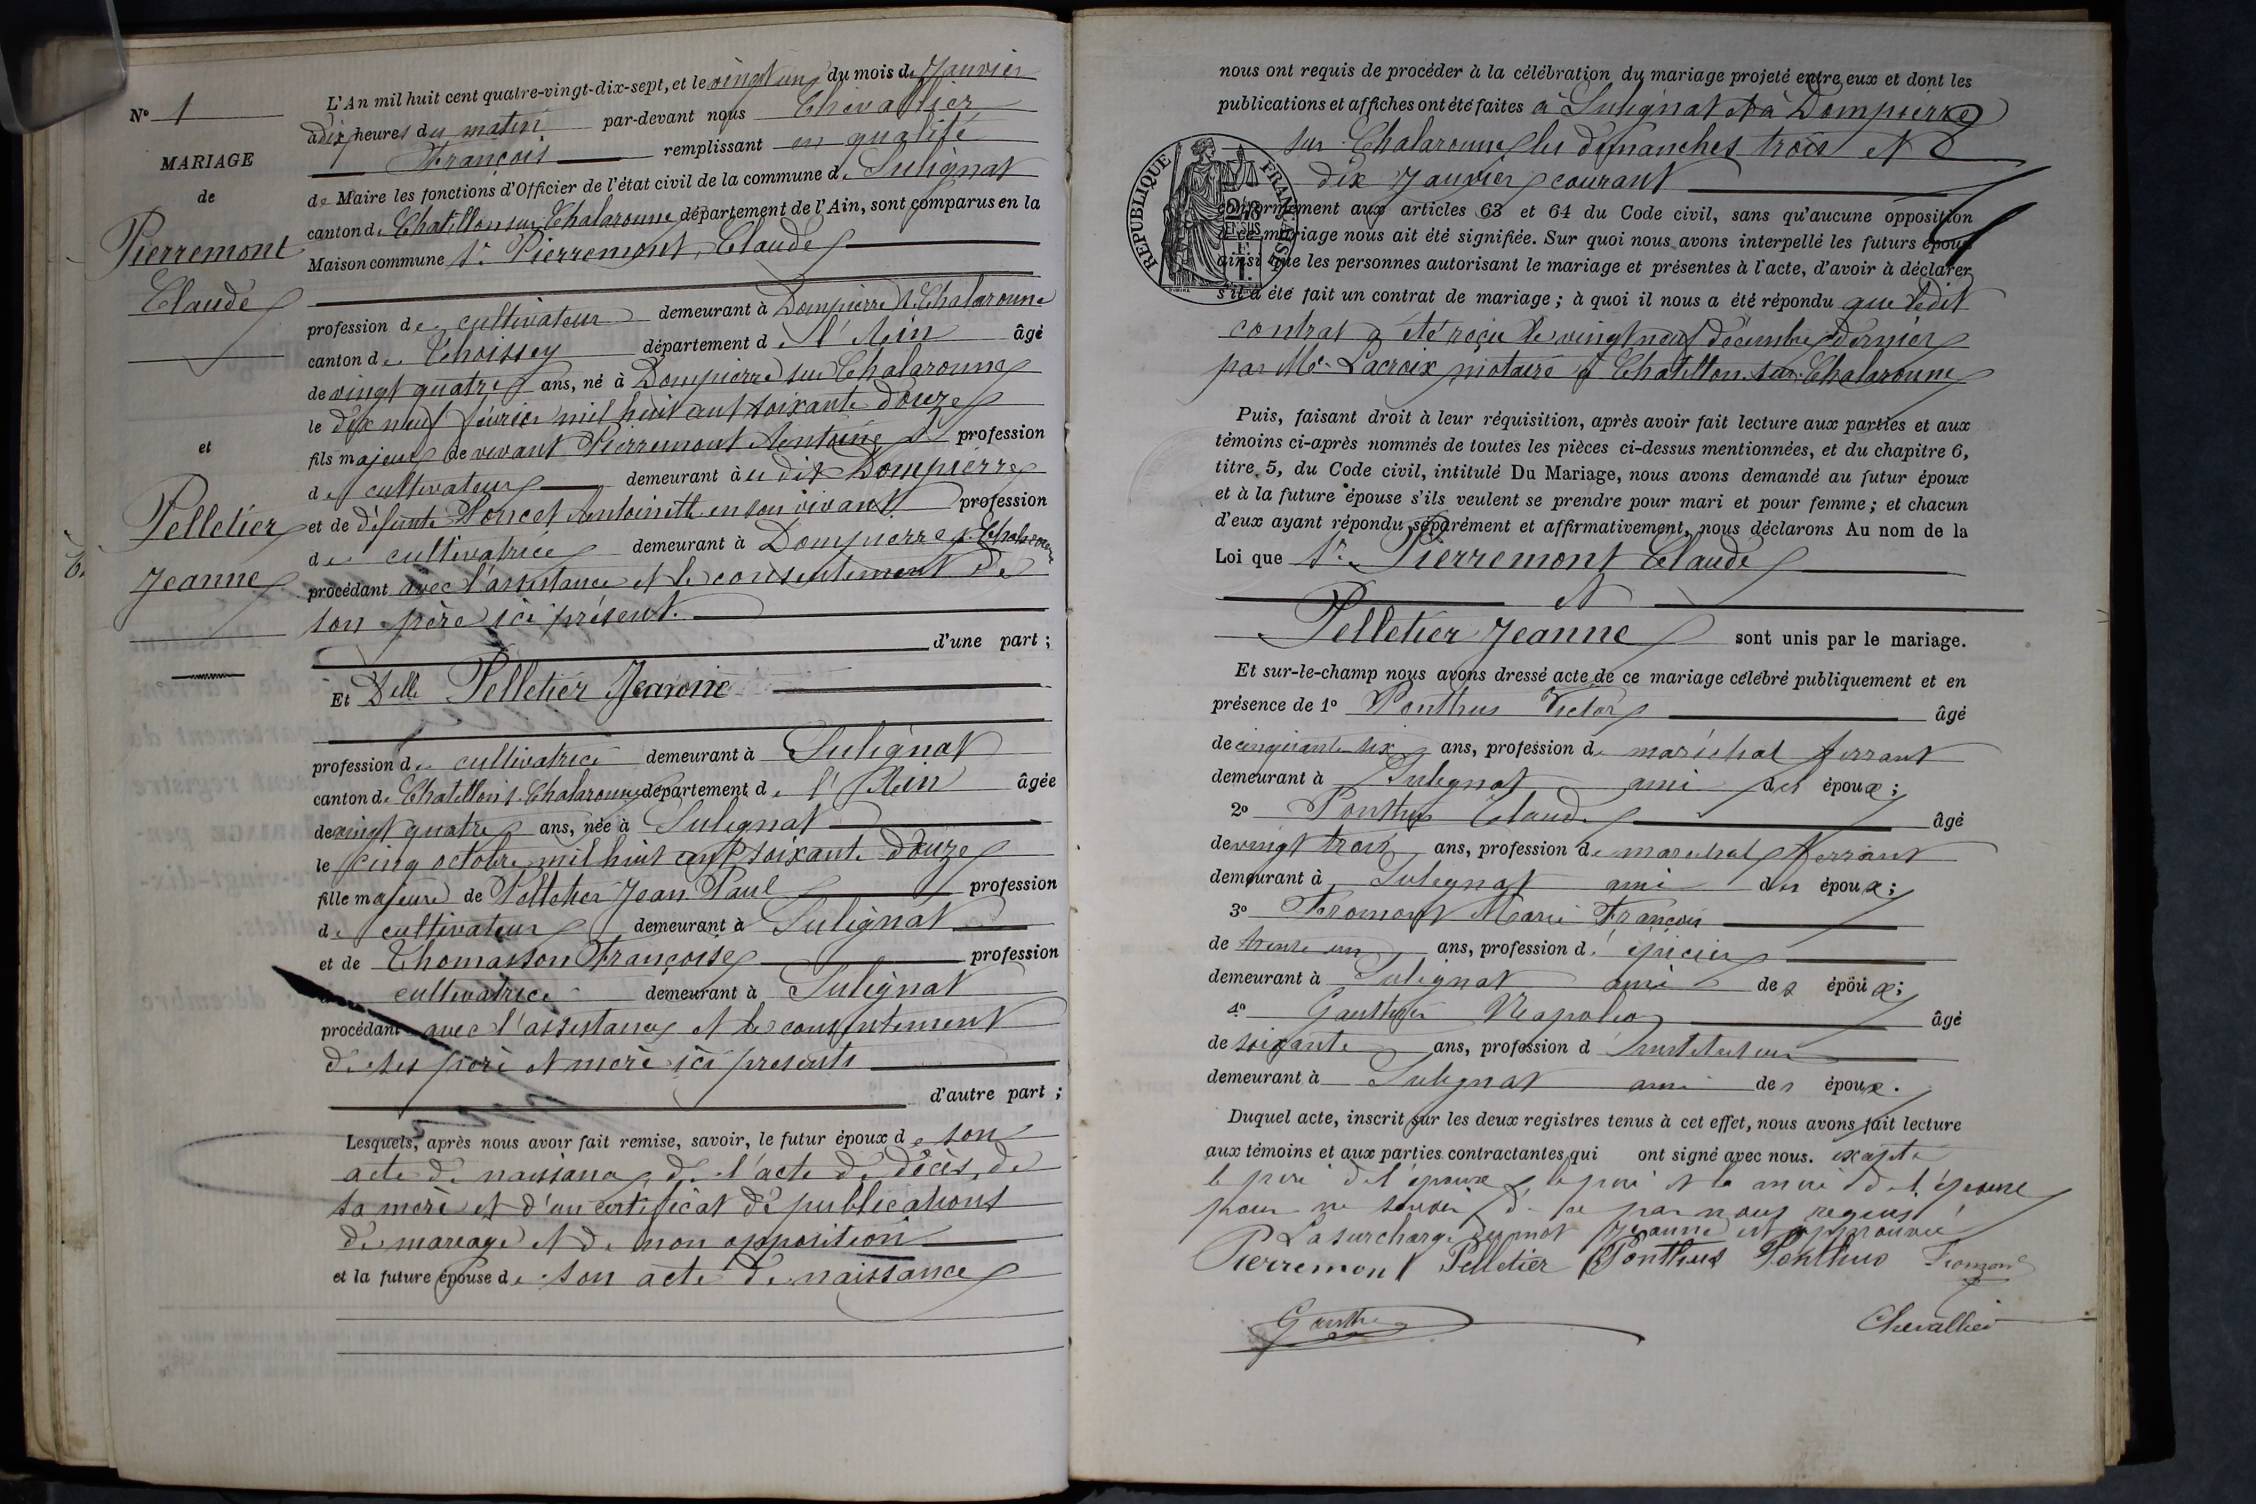 N° 1
MARIAGE
de
Pierremont
Claude
et
Pelletier
Jeanne
L'An mil huit cent quatre-vingt-dix-sept, et le vingt un du mois de Janvier
à dix heures du matin par-devant nous Chevallier
François remplissant en qualité
de Maire les fonctions d'Officier de l'état civil de la commune de Sulignat
canton de Chatillon sur Chalaronne département de l'Ain, sont comparus en la
Maison commune Sr. Pierremont Claude
profession de cultivateur demeurant à Dompierre s. Chalaronne
canton de Thoissey département de l'Ain âgé
de vingt quatre ans, né à Dompierre sur Chalaronne
le dix neuf février mil huit cent soixante douze
fils majeur de vivant Pierremont Antoine profession
de cultivateur demeurant à u dit Dompierre
et de défunte Poncet Antoinette en son vivant profession
de cultivatrice demeurant à Dompierre s. Chalaronne
procédant avec l'assistance et le consentement de
son père ici présent.
d'une part ;
Et Delle Pelletier Jeanne
profession de cultivatrice demeurant à Sulignat
canton de Chatillon s. Chalaronne département de l'Ain âgée
de vingt quatre ans, née à Sulignat
le cinq octobre mil huit cent soixante douze
fille majeure de Pelletier Jean Paul profession
de cultivateur demeurant à Sulignat
et de Thomasson Françoise profession
de cultivatrice demeurant à Sulignat
procédant avec l'assistance et le consentement
de ses père et mère ici présents
d'autre part ;
Lesquels, après nous avoir fait remise, savoir, le futur époux de son
acte de naissance, de l'acte de décès de
sa mère et d'un certificat de publications
de mariage et de non opposition
et la future épouse de son acte de naissance
nous ont requis de procéder à la célébration du mariage projeté entre eux et dont les
publications et affiches ont été faites à Sulignat et à Dompierre
sur Chalaronne les dimanches trois et
dix Janvier courant
RÉPUBLIQUE FRANÇAISE
conformément aux articles 63 et 64 du Code civil, sans qu'aucune opposition
à ce mariage nous ait été signifiée. Sur quoi nous avons interpellé les futurs époux
ainsi que les personnes autorisant le mariage et présentes à l'acte, d'avoir à déclarer
s'il a été fait un contrat de mariage ; à quoi il nous a été répondu que ledit
contrat a été reçu le vingt neuf décembre dernier
par Me. Lacroix notaire à Chatillon-sur-Chalaronne
Puis, faisant droit à leur réquisition, après avoir fait lecture aux parties et aux
témoins ci-après nommés de toutes les pièces ci-dessus mentionnées, et du chapitre 6,
titre 5, du Code civil, intitulé Du Mariage, nous avons demandé au futur époux
et à la future épouse s'ils veulent se prendre pour mari et pour femme ; et chacun
d'eux ayant répondu séparément et affirmativement, nous déclarons Au nom de la
Loi que Sr. Pierremont Claude
et
Pelletier Jeanne sont unis par le mariage.
Et sur-le-champ nous avons dressé acte de ce mariage célébré publiquement et en
présence de 1° Ponthus Victor âgé
de cinquante six ans, profession de maréchal ferrant
demeurant à Sulignat ami des époux ;
2° Ponthus Claude âgé
de vingt trois ans, profession de maréchal ferrant
demeurant à Sulignat ami des époux ;
3° Fromont Marie François
de trente un ans, profession d'épicier
demeurant à Sulignat ami des époux ;
4° Gauthier Napoléon âgé
de soixante ans, profession d'instituteur
demeurant à Sulignat ami des époux.
Duquel acte, inscrit sur les deux registres tenus à cet effet, nous avons fait lecture
aux témoins et aux parties contractantes qui ont signé avec nous. excepté
le père de l'époux, le père et la mère de l'épouse
pour ne savoir de ce par nous requis
La surcharge du mot Jeanne est approuvée
Pierremont Pelletier Ponthus Ponthus Fromont
Gauthier Chevallier